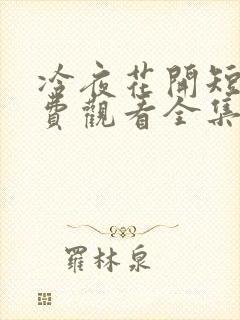 冷夜花開短
費觀看全集
羅林泉